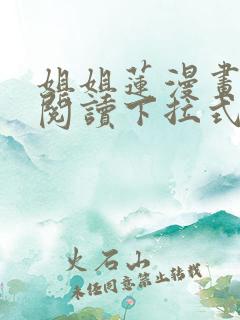 姐姐蓮漫畫
閱讀下拉式
火石山
未經同意禁止轉載